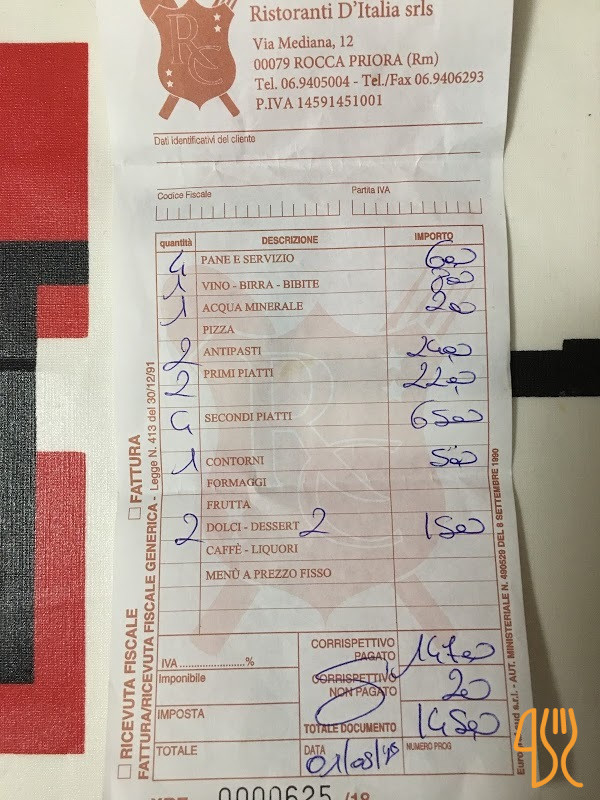 Ristoranti D'Italia srls
Via Mediana, 12
00079 ROCCA PRIORA (Rm)
Tel. 06.9405004 - Tel./Fax 06.9406293
P.IVA 14591451001
Dati identificativi del cliente
Codice Fiscale Partita IVA
quantità DESCRIZIONE IMPORTO
4 PANE E SERVIZIO 6,00
1 VINO - BIRRA - BIBITE
1 ACQUA MINERALE 2,00
PIZZA
2 ANTIPASTI 24,00
2 PRIMI PIATTI 22,00
4 SECONDI PIATTI 65,00
1 CONTORNI 5,00
FORMAGGI
FRUTTA
2 DOLCI - DESSERT 2 15,00
CAFFÈ - LIQUORI
MENÙ A PREZZO FISSO
IVA ...................... %
CORRISPETTIVO PAGATO 147,00
Imponibile
CORRISPETTIVO NON PAGATO
IMPOSTA
TOTALE DOCUMENTO 145,00
TOTALE
DATA 01/08/18
NUMERO PROG
0000625 /18
RICEVUTA FISCALE
FATTURA
FATTURA/RICEVUTA FISCALE GENERICA - Legge N. 413 del 30/12/91
AUT. MINISTERIALE N. 490529 DEL 8 SETTEMBRE 1990